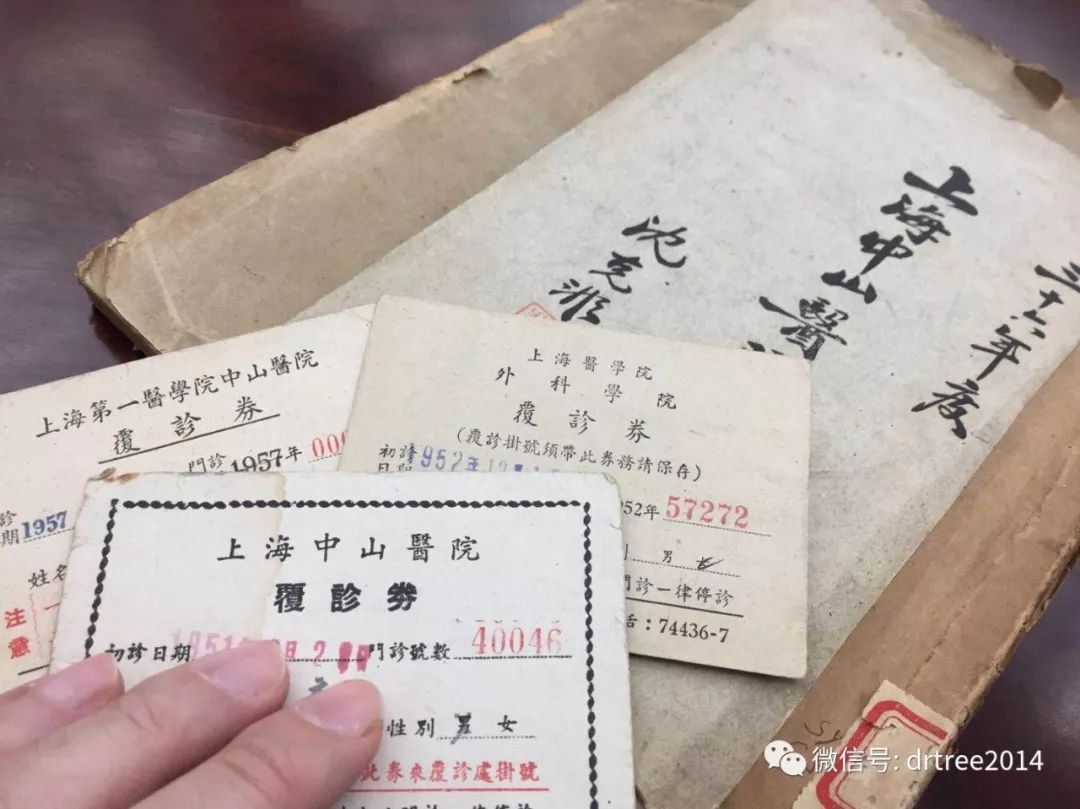 三十六年度
上海中山醫
沈克非
上海第一醫學院中山醫院
覆診券
門診 1957年
期 1957
姓名
注意
上海醫學院
外科學院
覆診券
(覆診掛號須帶此券務請保存)
初診
日期 1952年
52年 57272
男
門診一律停診
話:74436-7
上海中山醫院
覆診券
初診日期 1951 月 2 門診號數 40046
性別 男 女
此券來覆診處掛號
微信号: drtree2014